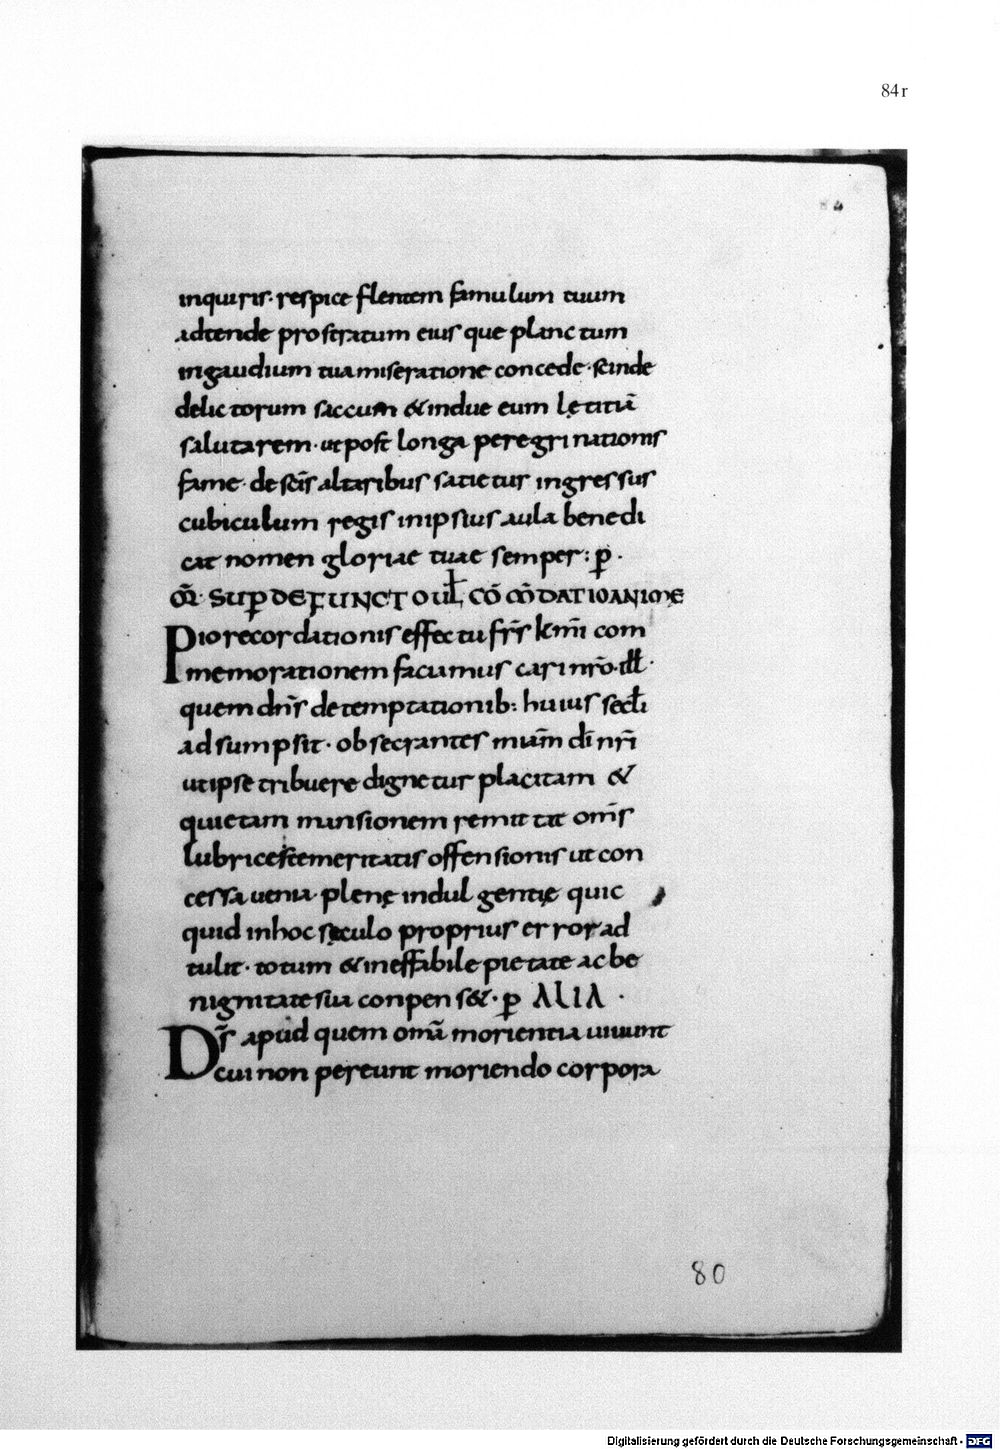 84r
inquiris· respice flentem famulum tuum
adtende prostratum eius que planctum
ingaudium tua miseratione concede· scinde
delictorum saccum &indue eum lętitiā
salutarem· ut post longa peregrinationis
fame· de sc̄is altaribus satietur ingressus
cubiculum regis inipsius aula benedi
cat nomen gloriae tuae semper: p̲·
OR̄· SUP̲ DEFUNCTO UL̵, CŌM̄DATIO ANIME
Pio recordationis effectu fr̄s km̄i com
memorationem faciamus cari nr̄o· ill̵·
quem dn̄s de temptationib: huius secl̵i
adsumpsit· obsecrantes miām dī nr̄i
ut ipse tribuere dignetur placitam &
quietam mansionem remittat om̄s
lubrice temeritatis offensionis ut con
cessa uenia· plenę indulgentię quic
quid inhoc sęculo proprius error ad
tulit· totum &ineffabile pietate ac be
nignitate sua conpens&· p̲ ALIA ·
Ds̄ apud quem om̄ā morientia uiuunt
cui non pereunt moriendo corpora
80
Digitalisierung gefördert durch die Deutsche Forschungsgemeinschaft - DFG